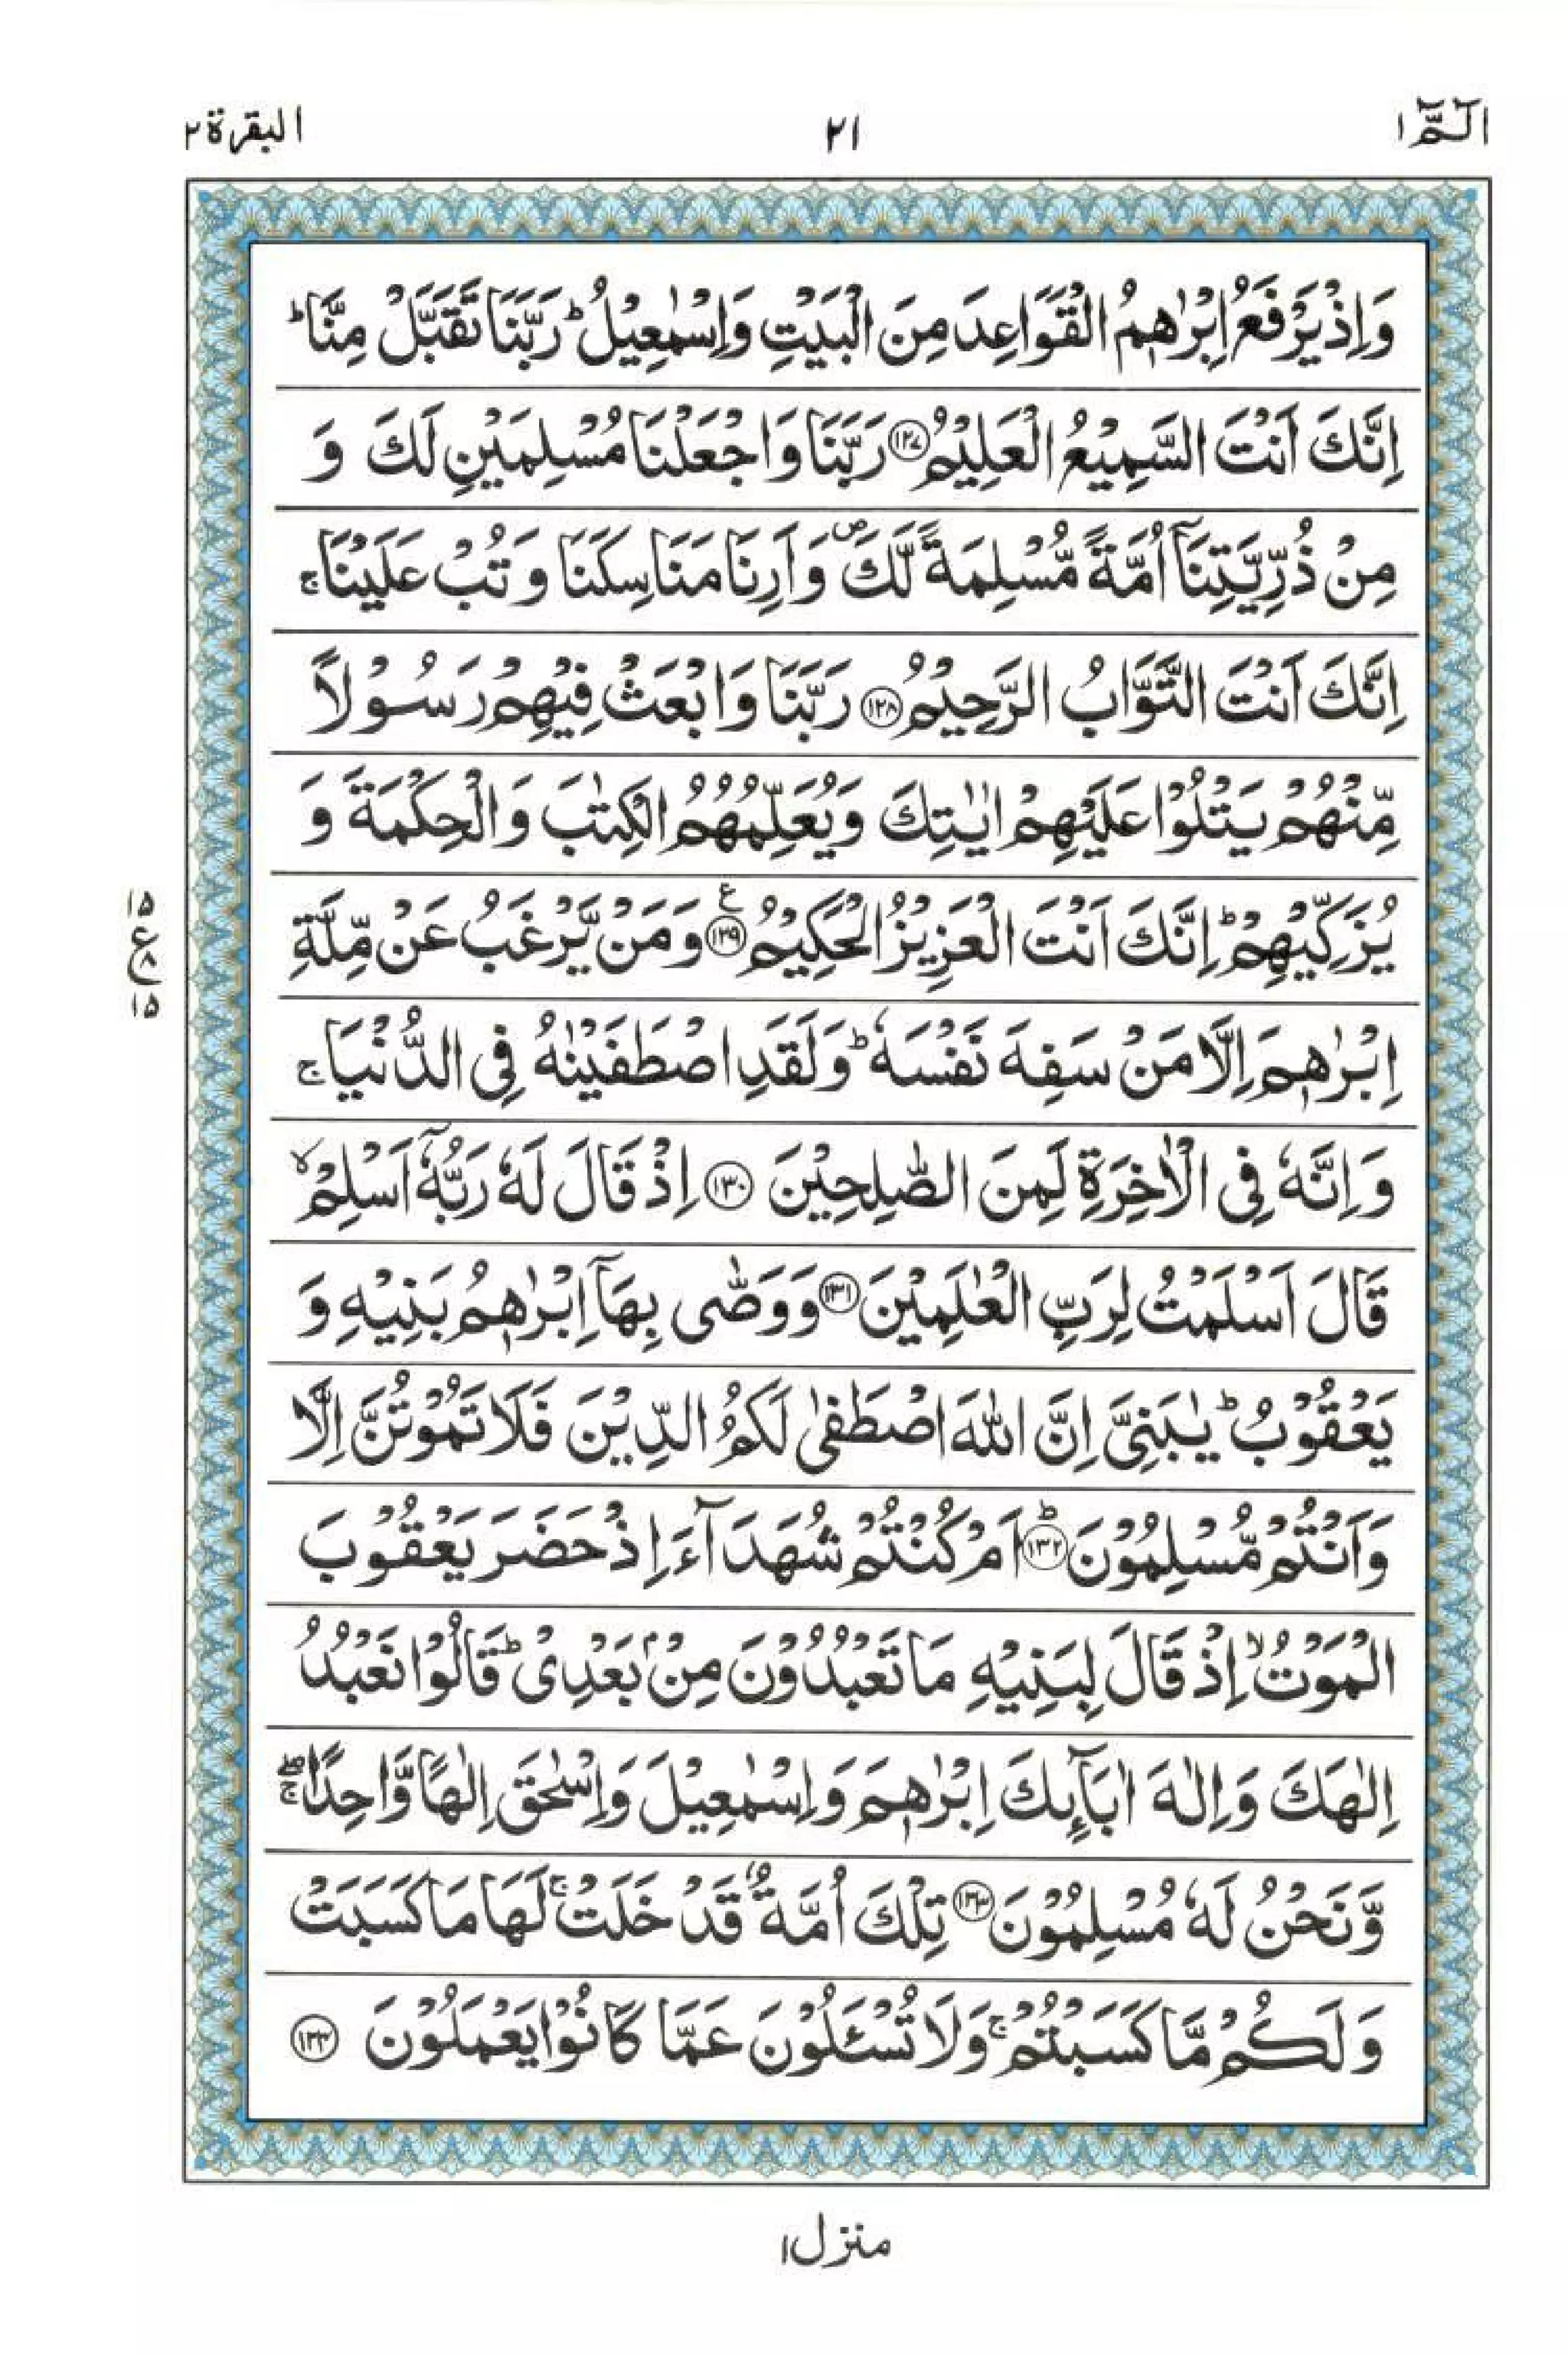 الٓمّٓ ١
٢١
البقرة ٢
وَاِذْ يَرْفَعُ اِبْرٰهٖمُ الْقَوَاعِدَ مِنَ الْبَيْتِ وَاِسْمٰعِيْلُ ؕ رَبَّنَا تَقَبَّلْ مِنَّا ؕ
اِنَّكَ اَنْتَ السَّمِيْعُ الْعَلِيْمُ ﴿١٢٧﴾ رَبَّنَا وَاجْعَلْنَا مُسْلِمَيْنِ لَكَ وَ
مِنْ ذُرِّيَّتِنَآ اُمَّةً مُّسْلِمَةً لَّكَ ۪ وَاَرِنَا مَنَاسِكَنَا وَتُبْ عَلَيْنَا ۚ
اِنَّكَ اَنْتَ التَّوَّابُ الرَّحِيْمُ ﴿١٢٨﴾ رَبَّنَا وَابْعَثْ فِيْهِمْ رَسُوْلًا
مِّنْهُمْ يَتْلُوْا عَلَيْهِمْ اٰيٰتِكَ وَيُعَلِّمُهُمُ الْكِتٰبَ وَالْحِكْمَةَ وَ
يُزَكِّيْهِمْ ؕ اِنَّكَ اَنْتَ الْعَزِيْزُ الْحَكِيْمُ ﴿١٢٩﴾ ع وَمَنْ يَّرْغَبُ عَنْ مِّلَّةِ
١٥
ع
٨
١٥
اِبْرٰهٖمَ اِلَّا مَنْ سَفِهَ نَفْسَهٗ ؕ وَلَقَدِ اصْطَفَيْنٰهُ فِى الدُّنْيَا ۚ
وَاِنَّهٗ فِى الْاٰخِرَةِ لَمِنَ الصّٰلِحِيْنَ ﴿١٣٠﴾ اِذْ قَالَ لَهٗ رَبُّهٗٓ اَسْلِمْ ۙ
قَالَ اَسْلَمْتُ لِرَبِّ الْعٰلَمِيْنَ ﴿١٣١﴾ وَوَصّٰى بِهَآ اِبْرٰهٖمُ بَنِيْهِ وَ
يَعْقُوْبُ ؕ يٰبَنِىَّ اِنَّ اللّٰهَ اصْطَفٰى لَكُمُ الدِّيْنَ فَلَا تَمُوْتُنَّ اِلَّا
وَاَنْتُمْ مُّسْلِمُوْنَ ﴿١٣٢﴾ ؕ اَمْ كُنْتُمْ شُهَدَآءَ اِذْ حَضَرَ يَعْقُوْبَ
الْمَوْتُ ۙ اِذْ قَالَ لِبَنِيْهِ مَا تَعْبُدُوْنَ مِنْۢ بَعْدِىْ ؕ قَالُوْا نَعْبُدُ
اِلٰهَكَ وَاِلٰهَ اٰبَآئِكَ اِبْرٰهٖمَ وَاِسْمٰعِيْلَ وَاِسْحٰقَ اِلٰهًا وَّاحِدًا ۖۚ
وَّنَحْنُ لَهٗ مُسْلِمُوْنَ ﴿١٣٣﴾ تِلْكَ اُمَّةٌ قَدْ خَلَتْ ۚ لَهَا مَا كَسَبَتْ
وَلَكُمْ مَّا كَسَبْتُمْ ۚ وَلَا تُسْـَٔلُوْنَ عَمَّا كَانُوْا يَعْمَلُوْنَ ﴿١٣٤﴾
منزل ١